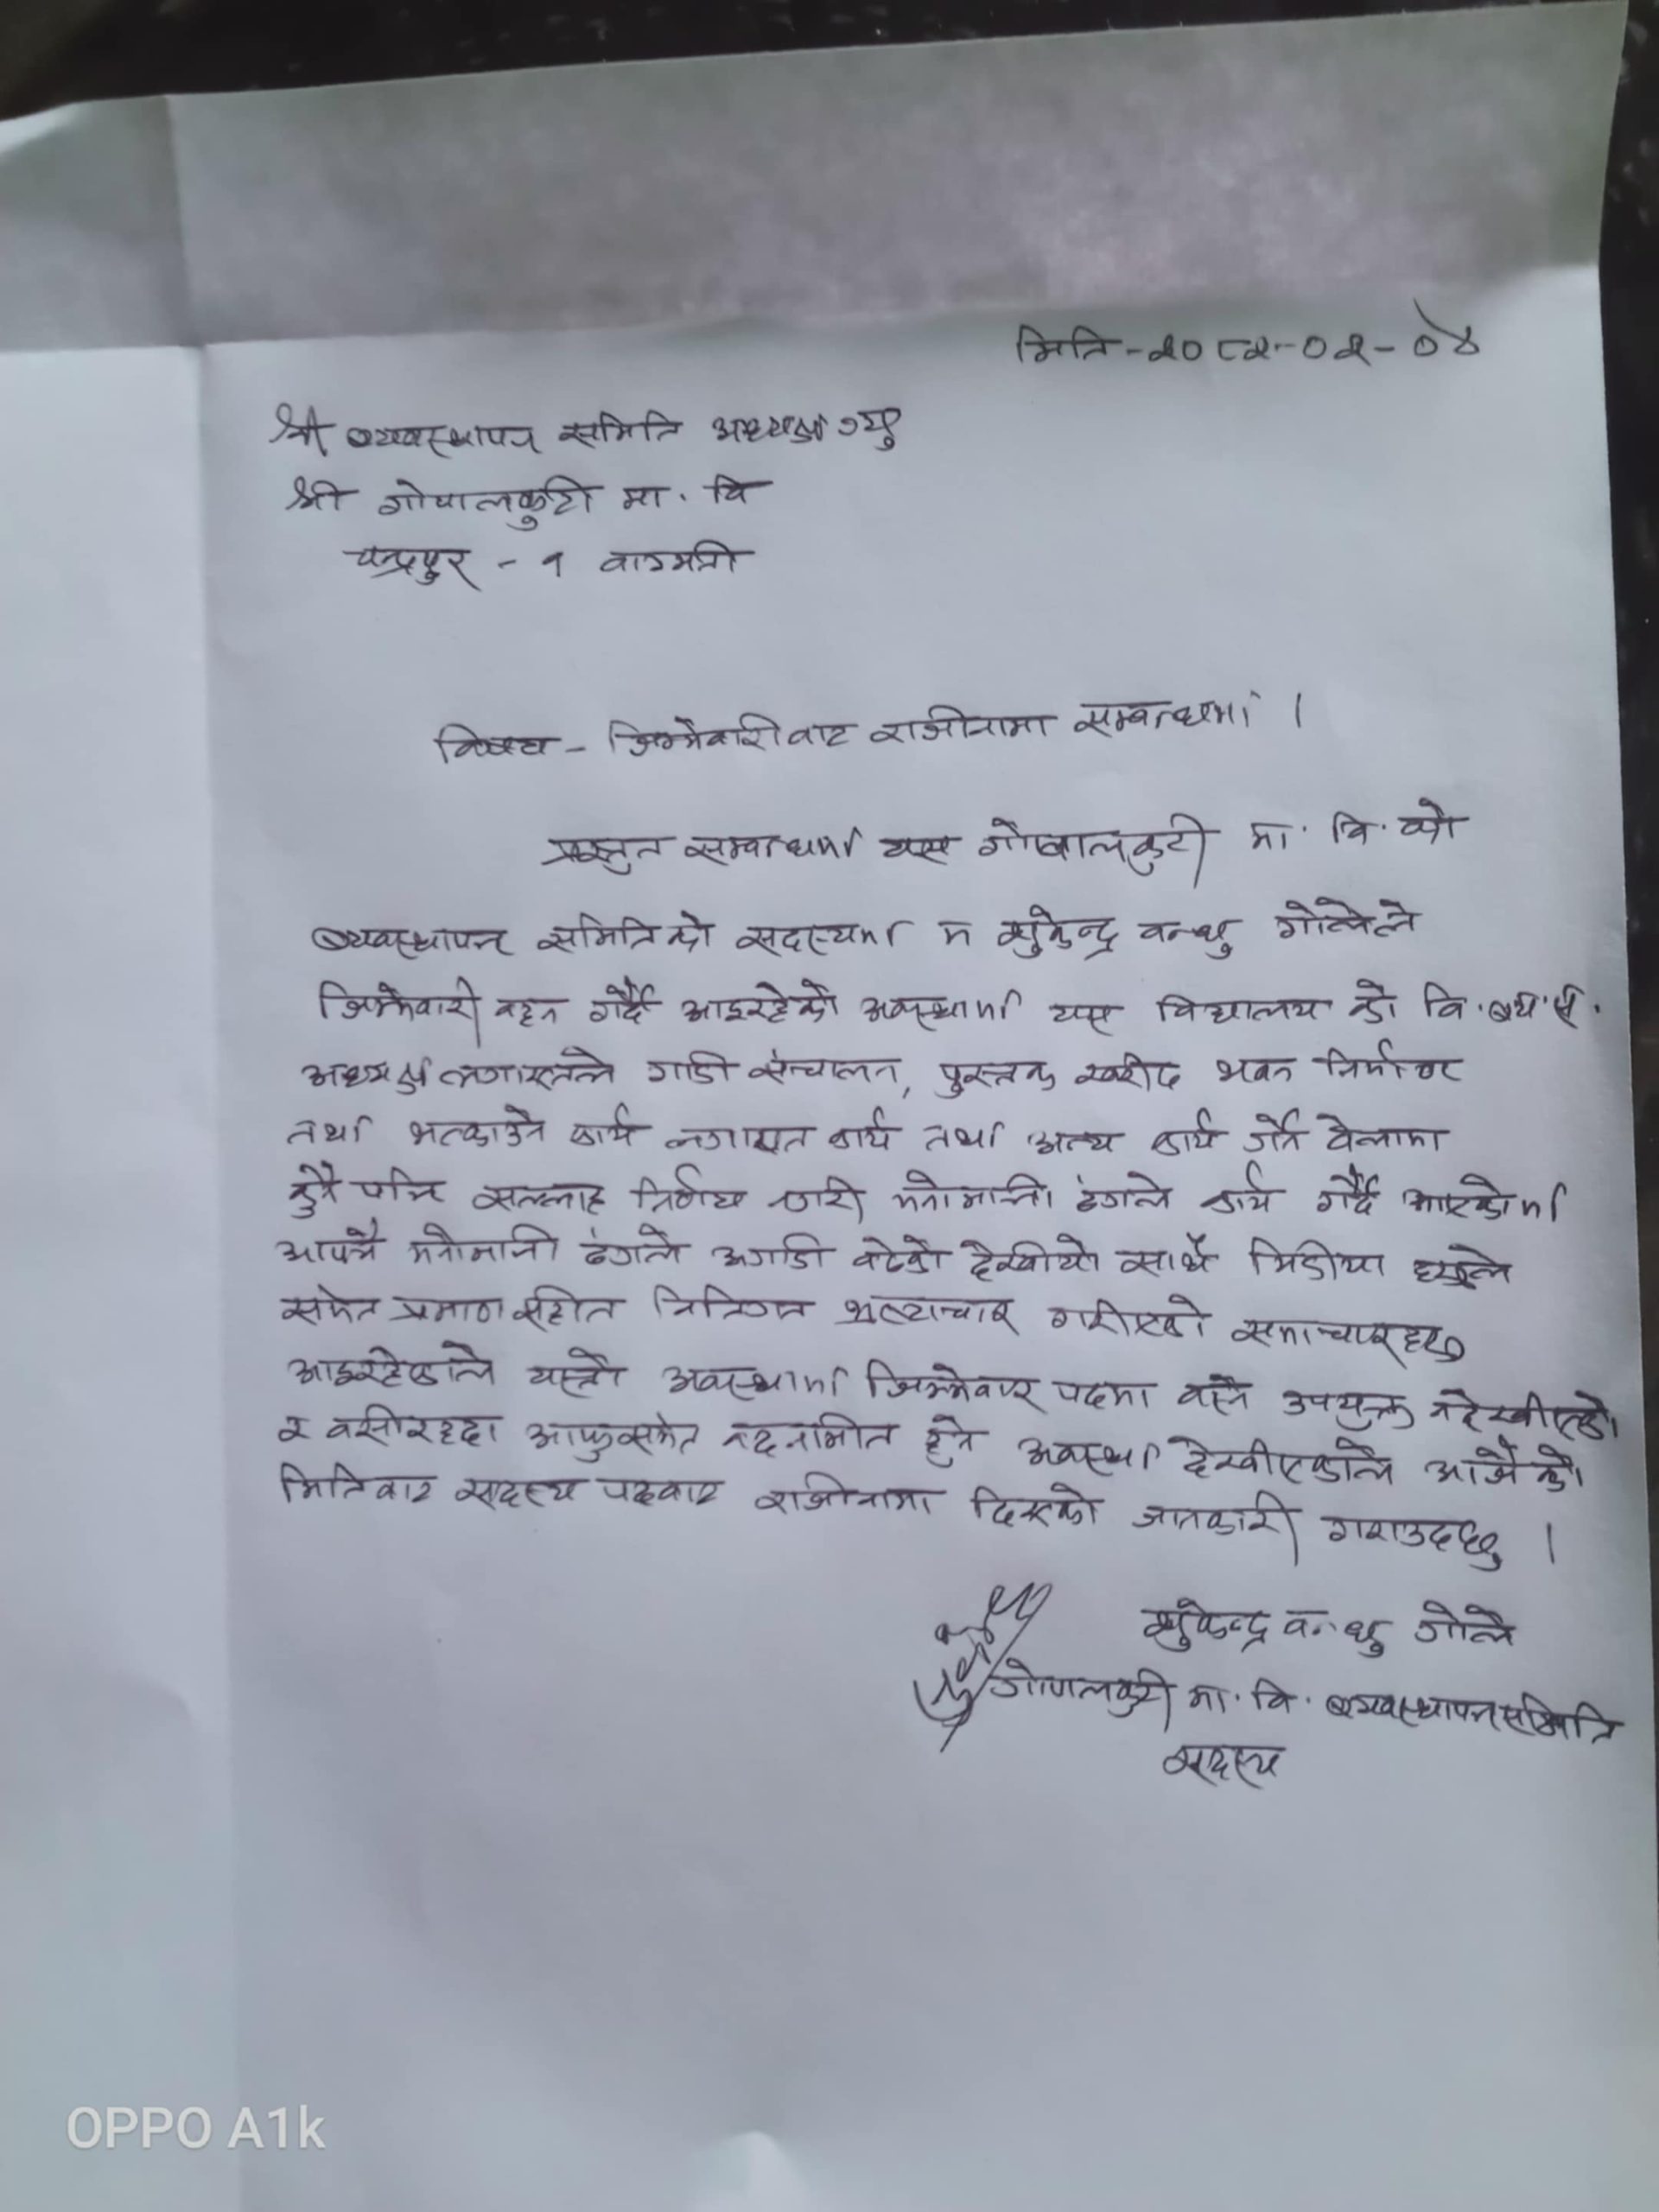 मिति-२०८२-०२-०४
श्री व्यवस्थापन समिति अध्यक्ष ज्यु
श्री गोपालकुटी मा. वि
चन्द्रपुर - १ वाग्मती
विषय - जिम्मेवारीवाट राजीनामा सम्वन्धमा ।
प्रस्तुत सम्वन्धमा यस गोपालकुटी मा. वि. को
व्यवस्थापन समितिको सदस्यमा म वन्धु गोलेले
जिम्मेवारी वहन गर्दै आइरहेको अवस्थामा यस विद्यालय को वि. व्य. स.
अध्यक्ष लगायतले गाडी संचालन, पुस्तक खरीद भवन निर्माण
तथा भत्काउने कार्य लगायत कार्य तथा अन्य कार्य गर्ने वेलामा
कुनै पनि सल्लाह निर्णय नगरी मनोमानी ढंगले कार्य गर्दै आएकोमा
आफ्नै मनोमानी ढंगले अगाडी वढेको देखीयो साथै मिडीया हरुले
समेत प्रमाण सहीत भ्रष्टाचार गरीएको समाचारहरु
आइरहेकाले यस्तो अवस्थामा जिम्मेवार पदमा वस्न उपयुक्त नदेखीएको
र वसीरहदा आफुसमेत वदनामीत हुने अवस्था देखीएकाले आजै को
मितिवाट सदस्य पदवाट राजीनामा दिएको जानकारी गराउदछु ।
वन्धु गोले
गोपालकुटी मा. वि. व्यवस्थापन समिति
सदस्य
OPPO A1k